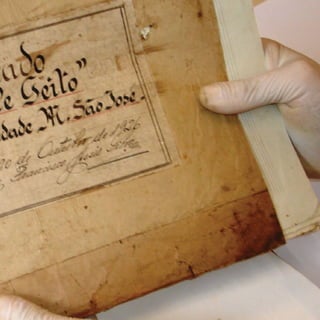 ado
e Geito"
dade M. São José.
de Outubro de 1936
Francisco